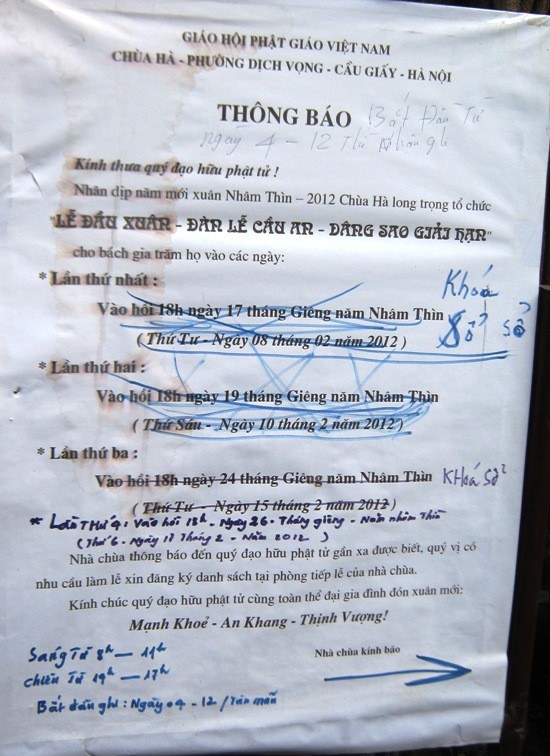 GIÁO HỘI PHẬT GIÁO VIỆT NAM
CHÙA HÀ - PHƯỜNG DỊCH VỌNG - CẦU GIẤY - HÀ NỘI
THÔNG BÁO Bắt Đầu Từ
ngày 4 - 12
Kính thưa quý đạo hữu phật tử !
Nhân dịp năm mới xuân Nhâm Thìn – 2012 Chùa Hà long trọng tổ chức
"LỄ ĐẦU XUÂN - ĐÀN LỄ CẦU AN - DÂNG SAO GIẢI HẠN"
cho bách gia trăm họ vào các ngày:
* Lần thứ nhất :
Khoá
Vào hồi 18h ngày 17 tháng Giêng năm Nhâm Thìn Sổ Sổ
( Thứ Tư - Ngày 08 tháng 02 năm 2012 )
* Lần thứ hai :
Vào hồi 18h ngày 19 tháng Giêng năm Nhâm Thìn
( Thứ Sáu - Ngày 10 tháng 2 năm 2012 )
* Lần thứ ba :
Vào hồi 18h ngày 24 tháng Giêng năm Nhâm Thìn Khoá Sổ
( Thứ Tư - Ngày 15 tháng 2 năm 2012 )
* Lần THứ 4: Vào hồi 18h - Ngày 26 - Tháng giêng - Năm nhâm Thìn
(Thứ 6 - Ngày 17 Tháng 2 - Năm 2012 )
Nhà chùa thông báo đến quý đạo hữu phật tử gần xa được biết, quý vị có
nhu cầu làm lễ xin đăng ký danh sách tại phòng tiếp lễ của nhà chùa.
Kính chúc quý đạo hữu phật tử cùng toàn thể đại gia đình đón xuân mới:
Mạnh Khoẻ - An Khang - Thịnh Vượng!
Sáng Từ 8h - 11h
Nhà chùa kính báo
chiều Từ 14h - 17h
Bắt đầu ghi : Ngày 04 - 12 /